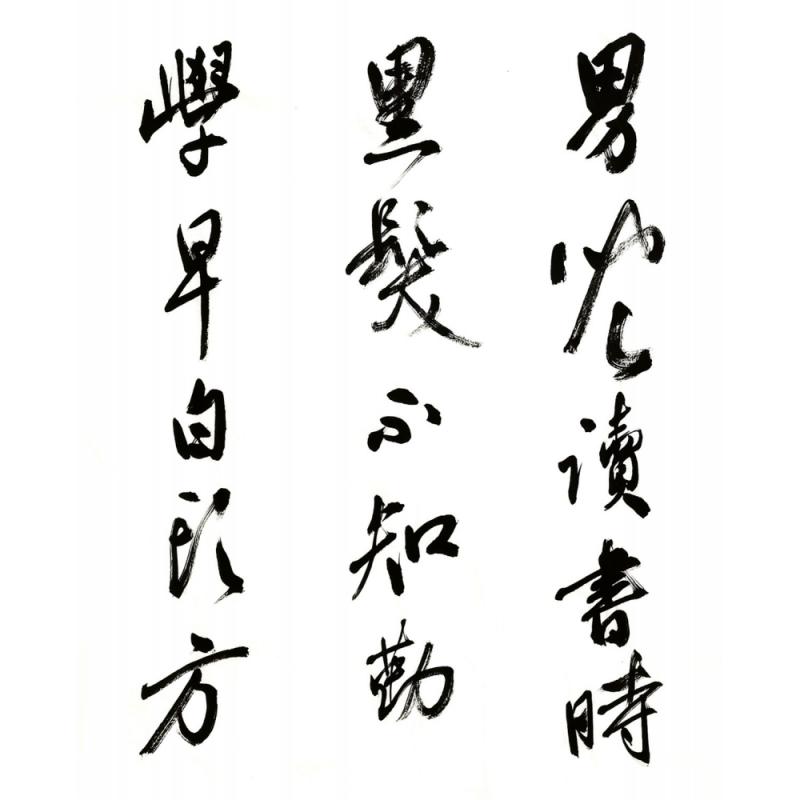 男兒讀書時
黑髮不知勤
學早白頭方